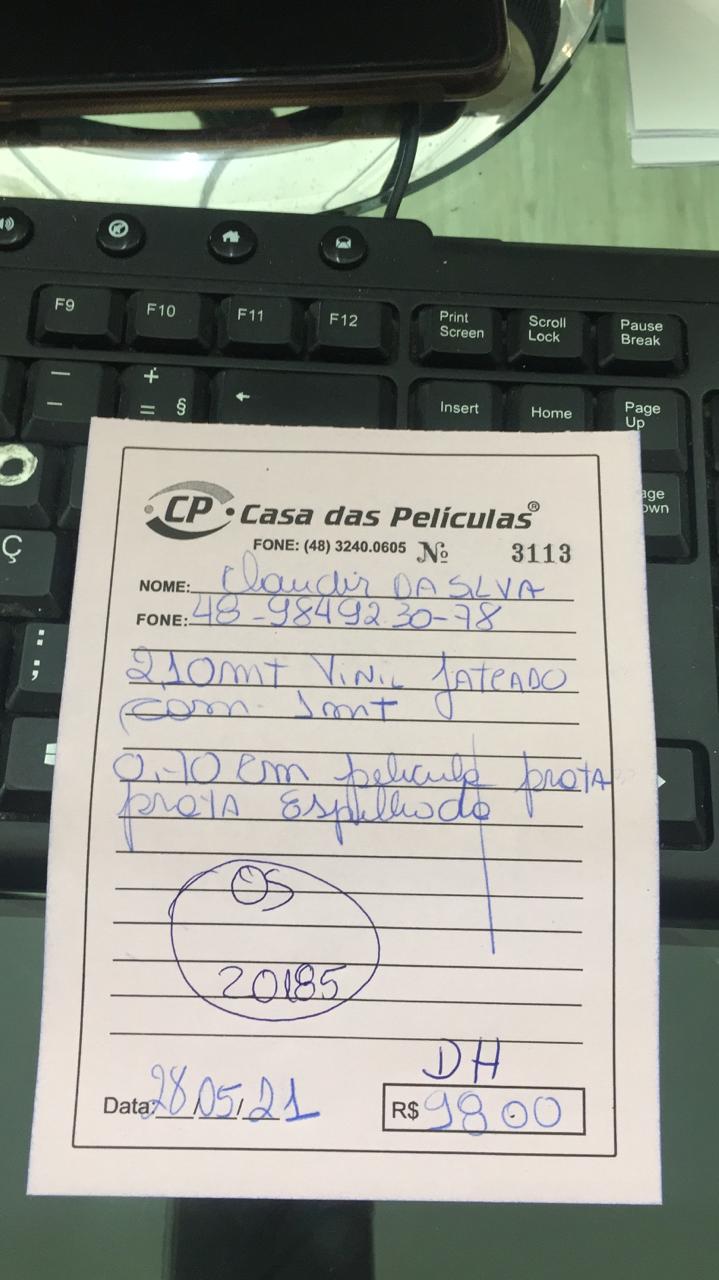 F9 F10 F11 F12 Print Screen Scroll Lock Pause Break
+
= § Insert Home Page Up
Ç
CP Casa das Películas®
FONE: (48) 3240.0605 Nº 3113
NOME: Claudir DA SILVA
FONE: 48-9849230-78
2,10mt ViNiL JATEADO
com 1mt
0,70 cm pelicula prata
prata Espelhado
OS
20185
DH
Data: 28/05/21 R$ 98 00